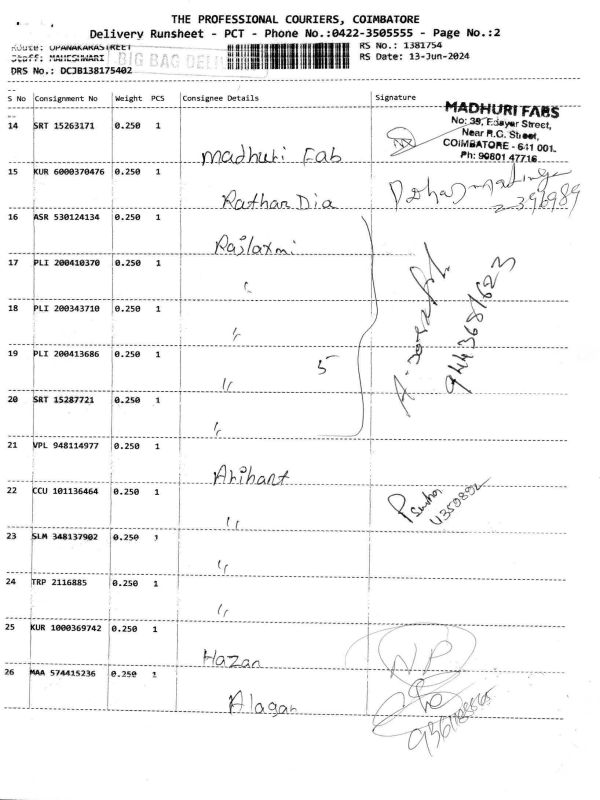 THE PROFESSIONAL COURIERS, COIMBATORE
Delivery Runsheet - PCT - Phone No.:0422-3505555 - Page No.:2
Route: OPANAKARASTREET
RS No.: 1381754
Staff: MAHESHWARI
BIG BAG DELI
RS Date: 13-Jun-2024
DRS No.: DCJB138175402
S No Consignment No Weight PCS Consignee Details Signature
14 SRT 15263171 0.250 1 Madhuri Fab
MADHURI FABS
No: 39, Edayar Street,
Near R.G. Street,
COIMBATORE - 641 001.
Ph: 90801 47716
15 KUR 6000370476 0.250 1 Rathan Dia
16 ASR 530124134 0.250 1 Rajlaxmi
17 PLI 200410370 0.250 1 "
18 PLI 200343710 0.250 1 "
19 PLI 200413686 0.250 1 " 5
20 SRT 15287721 0.250 1 "
9443681623
21 VPL 948114977 0.250 1 Arihant
22 CCU 101136464 0.250 1 "
23 SLM 348137902 0.250 1 "
24 TRP 2116885 0.250 1 "
25 KUR 1000369742 0.250 1 Hazan
NP
26 MAA 574415236 0.250 1 Alagan